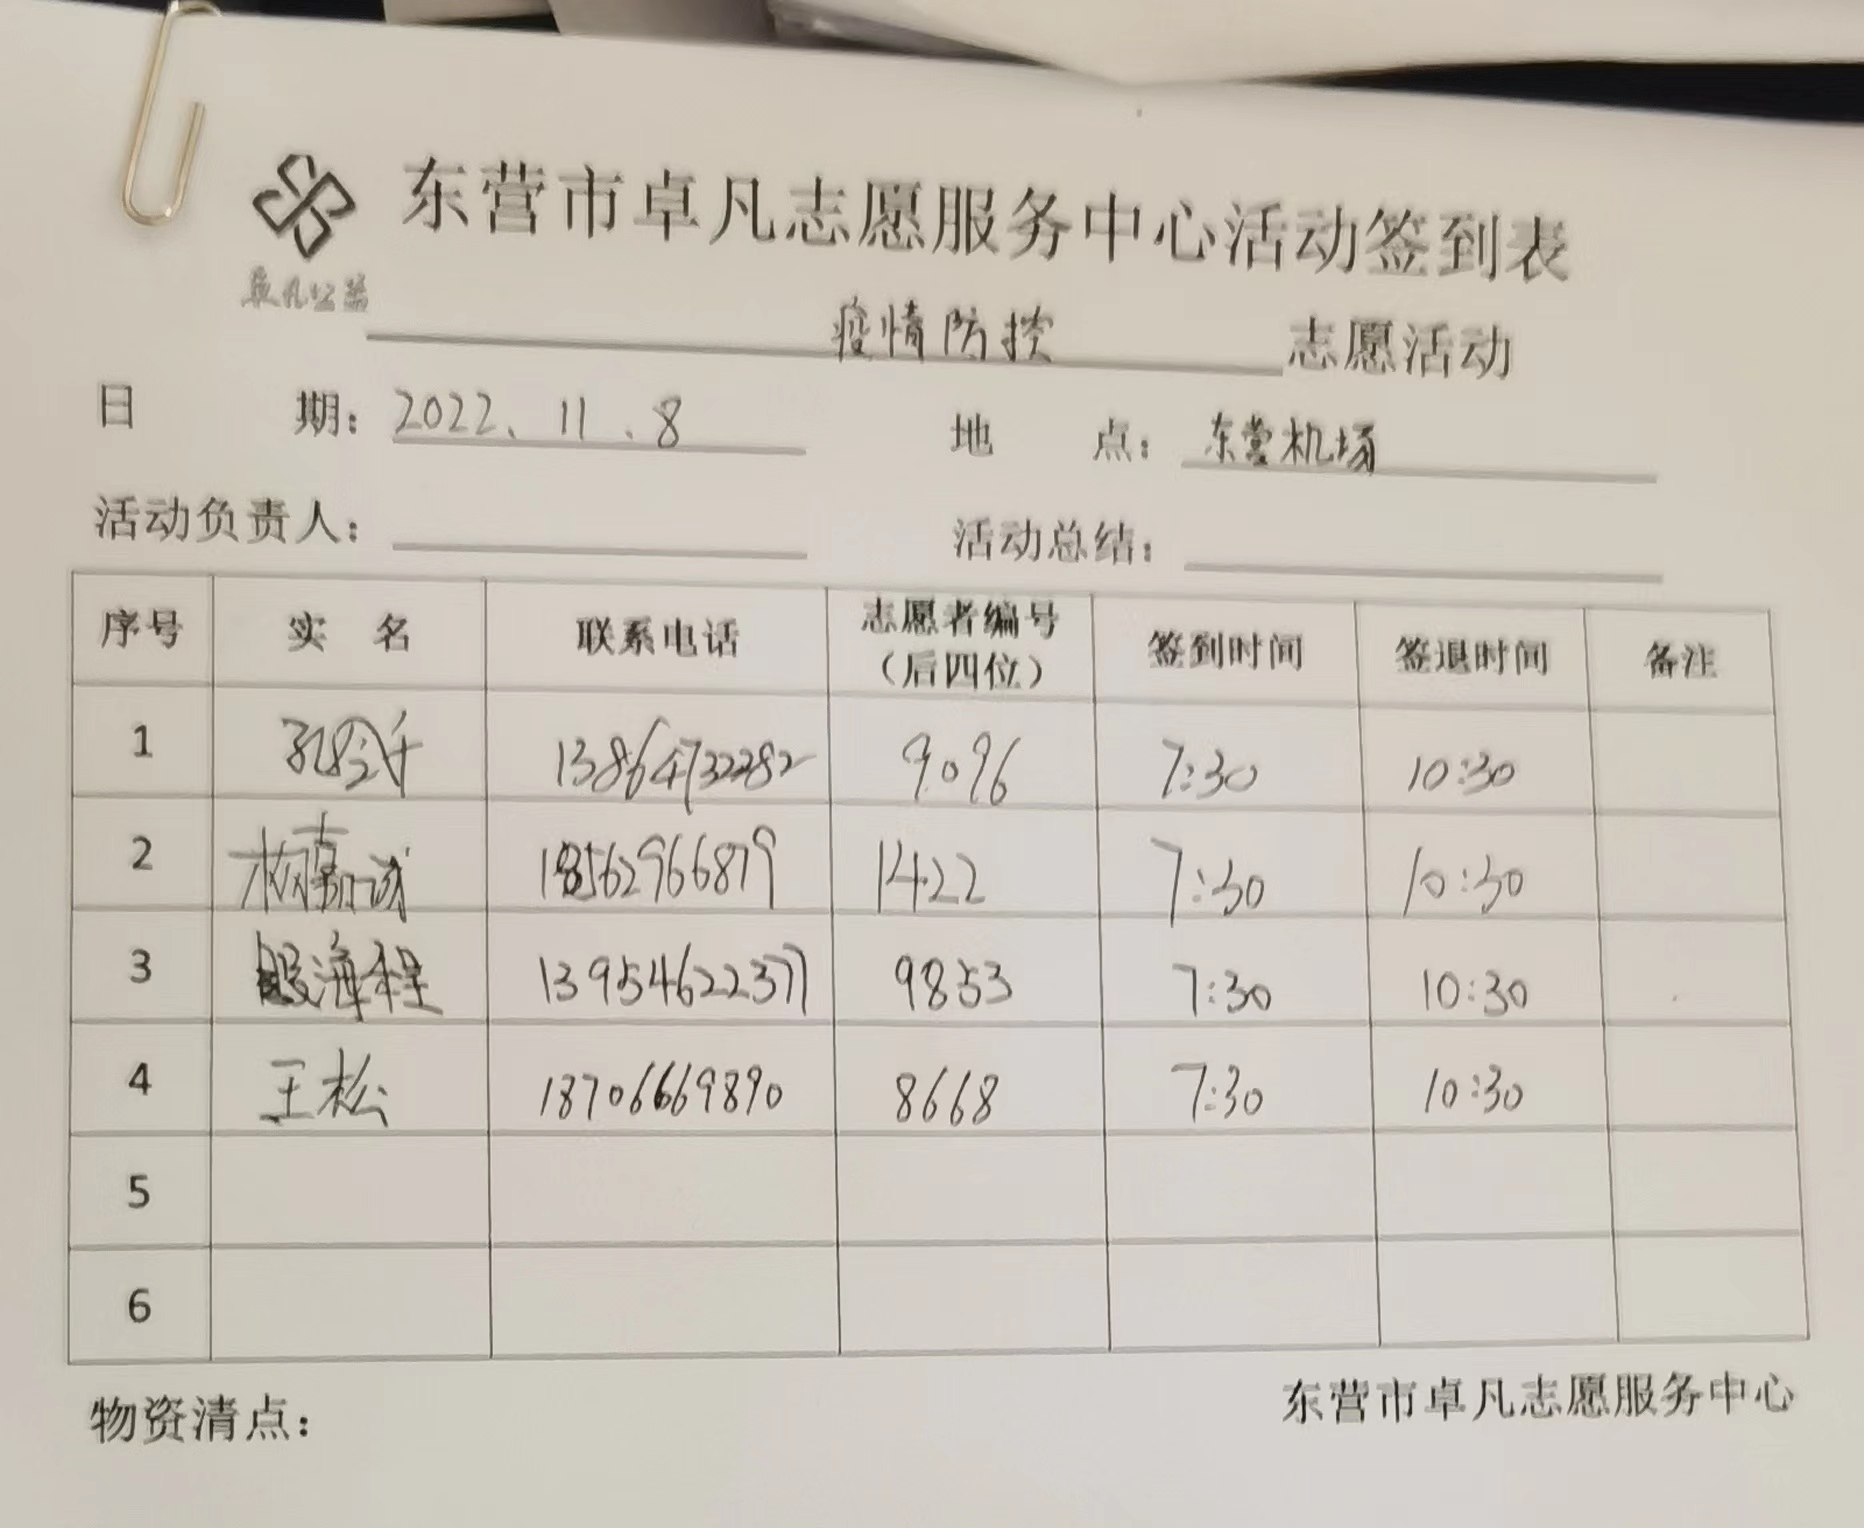 东营市卓凡志愿服务中心活动签到表
卓凡公益
疫情防控 志愿活动
日 期: 2022、11.8 地 点: 东营机场
活动负责人: 活动总结:
序号 实 名 联系电话 志愿者编号（后四位） 签到时间 签退时间 备注
1 13864732282 9096 7:30 10:30
2 嘉诚 18562966879 1422 7:30 10:30
3 殷海程 13954622377 9853 7:30 10:30
4 王松 18706669890 8668 7:30 10:30
5
6
物资清点: 东营市卓凡志愿服务中心